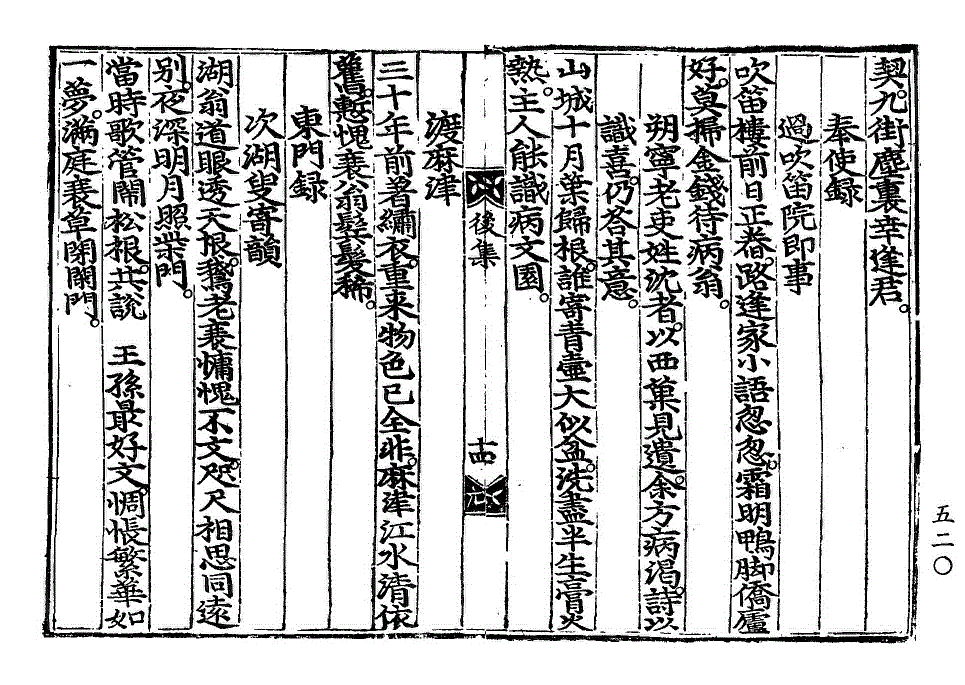 契。九街塵裏幸逢君。
奉使録
過吹笛院即事
吹笛樓前日正昏。路逢家小語忽忽。霜明鴨脚僑廬
好。莫掃金錢待病翁。
朔寧老吏姓沈者。以西菓見遺。余方病渴。詩以
識喜。仍答其意。
山城十月葉歸根。誰寄青壺大似盆。洗盡半生膏火
熱。主人能識病文園。
後集
十四
渡麻津
三十年前着繡衣。重来物色已全非。麻津江水清依
舊。慙愧衰翁鬂髮稀。
東門録
次湖叟寄韻
湖翁道眼透天根。我老衰慵愧不文。咫尺相思同遠
別。夜深明月照柴門。
當時歌管閙松根。共說 王孫最好文。惆悵繁華如
一夢。滿庭衰草閉閑門。
五二〇